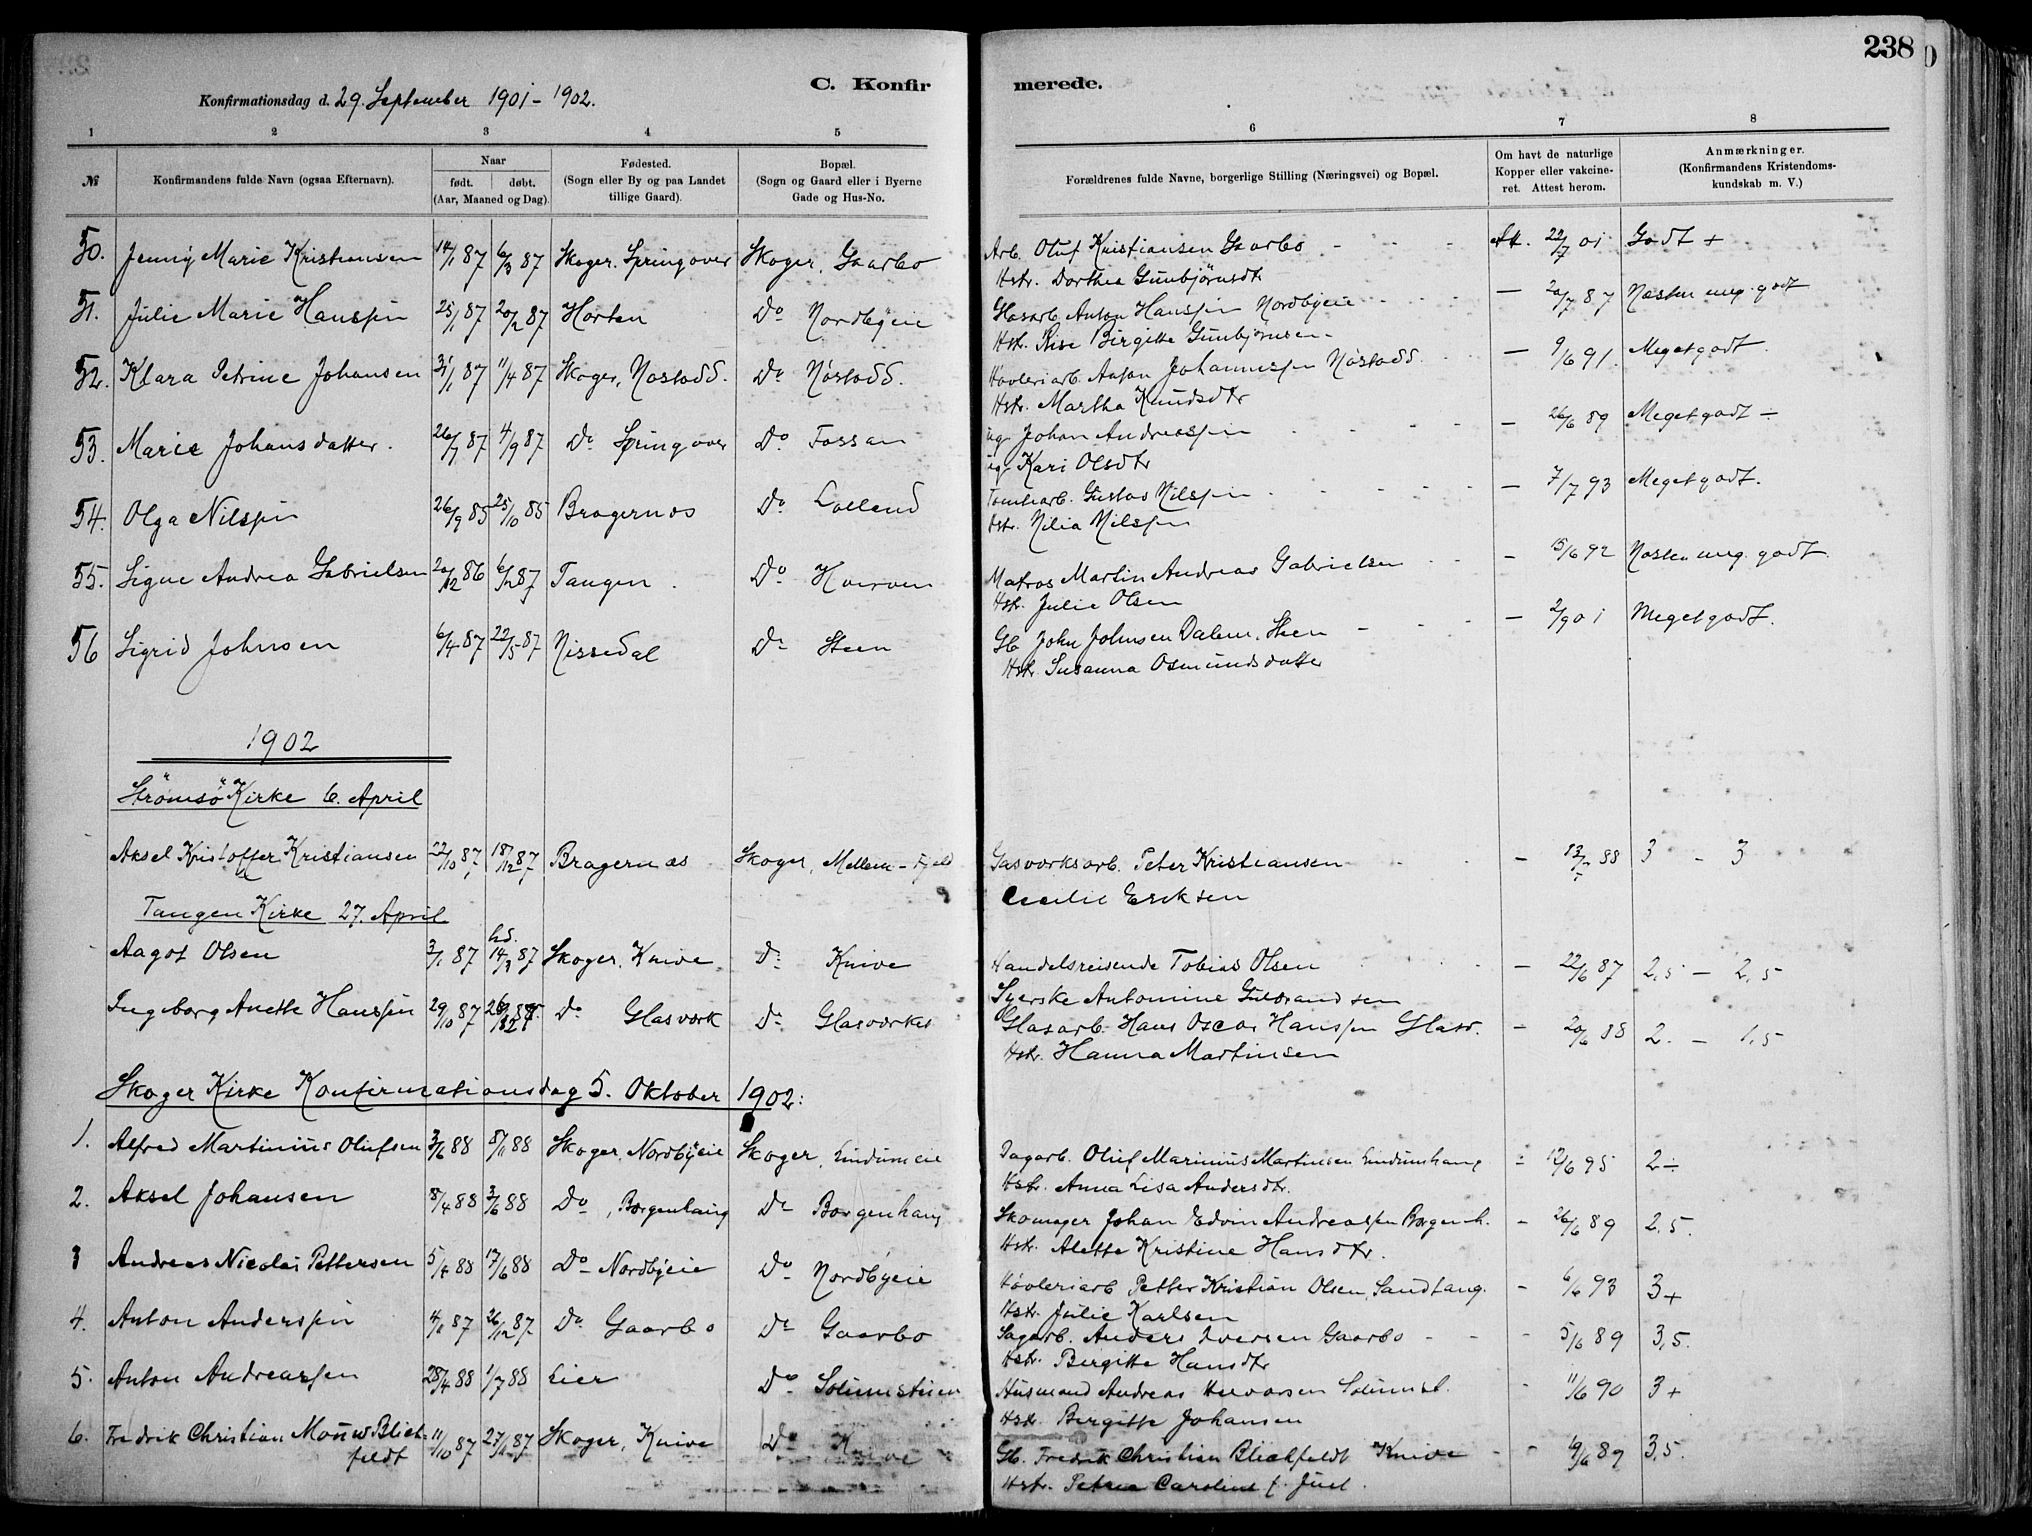 238
C. Konfirmerede.
Konfirmationsdag d. 29. September 1901-1902.
1 2 3 4 5 6 7 8
№ Konfirmandens fulde Navn (ogsaa Efternavn). Naar født. døbt. (Aar, Maaned og Dag). Fødested. (Sogn eller By og paa Landet tillige Gaard). Bopæl. (Sogn og Gaard eller i Byerne Gade og Hus-No. Forældrenes fulde Navne, borgerlige Stilling (Næringsvei) og Bopæl. Om havt de naturlige Kopper eller vakcineret. Attest herom. Anmærkninger. (Konfirmandens Kristendomskundskab m. V.)
50. Jenny Marie Kristiansen 14/1 87 6/3 87 Skoger. Springover Skoger, Gaarbo Arb. Oluf Kristiansen Gaarbo - Att. 22/7 01 Godt +
Hstr. Dorthea Gunbjørnsdtr
51. Julie Marie Hanssen 25/1 87 20/2 87 Horten Do Nordbyeie Glasarb. Anton Hanssen Nordbyeie - 20/7 87 Næsten meg. godt
Hstr. Birgitte Gunbjørnsen
52. Klara Petrine Johansen 31/1 87 11/4 87 Skoger, Nøstadd. Do Nøstadd. Høvleriarb. Anton Johannessen Nøstadd - 9/6 91 Meget godt.
Hstr. Martha Knudsdtr
53. Marie Johansdatter. 26/7 87 4/9 87 Do Springover Do Fossan ug. Johan Andreassen - 26/6 89 Meget godt -
ug. Kari Olsdtr
54. Olga Nilssen 26/9 85 25/10 85 Bragernæs Do Lolland Tomtearb. Gustav Nilssen - 7/7 93 Meget godt.
Hstr. Nilia Nilssen
55. Signe Andrea Gabrielsen 20/12 86 6/2 87 Tangen. Do Hverven Matros Martin Andreas Gabrielsen - 15/6 92 Næsten meg. godt.
Hstr. Julie Olsen
56 Sigrid Johnsen 6/4 87 22/5 87 Nissedal Do Steen Gb. John Johnsen Dalen, Steen - 2/9 01 Meget godt.
Hstr. Susanna Osmundsdatter
1902
Strømsö Kirke 6. April
Aksel Kristoffer Kristiansen 22/10 87 18/12 87 Bragernæs Skoger, Mellem-Fjeld Gasværksarb. Peter Kristiansen - 88 3 - 3
Cecilie Eriksen
Tangen Kirke 27. April
Aagot Olsen 3/1 87 hd. 14/3 87 Skoger, Knive Do Knive Handelsreisende Tobias Olsen - 22/6 87 2,5 - 2,5
Syerske Antonine Guldbrandsen
Ingeborg Anette Hanssen 29/10 87 Do Glasværk Do Glasværket Glasarb. Hans Oscar Hanssen Glasv. - 20/6 88 2. - 1,5
Hstr. Hanna Martinsen
Skoger Kirke Konfirmationsdag 5. Oktober 1902:
1. Alfred Martinius Olufsen 3/6 88 5/11 88 Skoger, Nordbyeie Skoger, Lindumeie Dagarb. Oluf Marinius Martinsen Lindumhaug - 12/6 95 2 -
Hstr. Anna Lisa Andersdtr.
2. Aksel Johansen 8/4 88 3/6 88 Do, Borgenhaug Do Borgenhaug Skomager Johan Edvin Andreassen Borgenh. - 26/6 89 2.5.
Hstr. Alette Kristine Hansdtr.
3 Andreas Nicolai Pettersen 5/4 88 17/6 88 Do Nordbyeie Do Nordbyeie Høvleriarb Petter Kristian Olsen, Sandtang. - 6/6 93 3+
Hstr. Julie Karlsen
4. Anton Anderssen 87 26/12 87 Do Gaarbo Do Gaarbo Sagarb. Anders Iversen Gaarbo - 5/6 89 3,5.
Hstr. Birgitte Hansdtr
5. Anton Andreassen 28/4 88 1/7 88 Lier Do Solumstuen Husmand Andreas Halvorsen Solumst. - 11/6 90 3+
Hstr. Birgitte Johansen
6. Fredrik Christian Mouw Blichfeldt 11/10 87 27/11 87 Skoger, Knive Do Knive Gb. Fredrik Christian Blichfeldt Knive - 19/6 89 3,5.
Hstr. Petrea Caroline f. Juel.